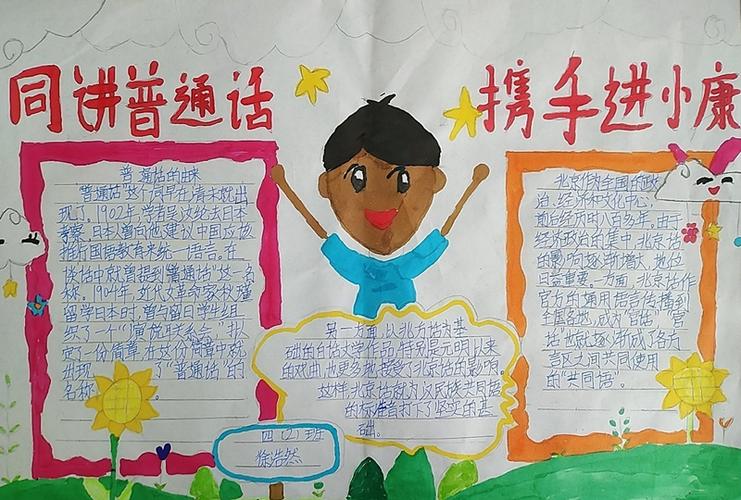 同讲普通话
携手进小康
普通话的由来
"普通话"这个词早在清末就出
现了。1902年,学者吴汝纶去日本
考察,日本曾向他建议中国应该
推行国语教育来统一语言。在
谈话中就曾提到"普通话"这一名
称。1904年,近代革命家秋瑾
留学日本时,曾与留日学生组
织了一个"演说联系会",拟
定了一份简章,在这份简章中就
出现了"普通话"的
名称
另一方面,以北方话为基
础的白话文学作品,特别是元明以来
的戏曲,也更多地接受了北京话的影响。
这样,北京话就为汉民族共同语
的标准音打下了坚实的基
础。
北京作为全国的政
治、经济和文化中心,
前后经历时八百多年。由于
经济政治的集中,北京话
的影响逐渐增大,地位
日益重要。一方面,北京话作
官方的通用语言传播到
全国各地,成为"官话""官
话"也就逐渐成了各方
言区之间共同使用
的"共同语"。
四(2)班
徐浩然